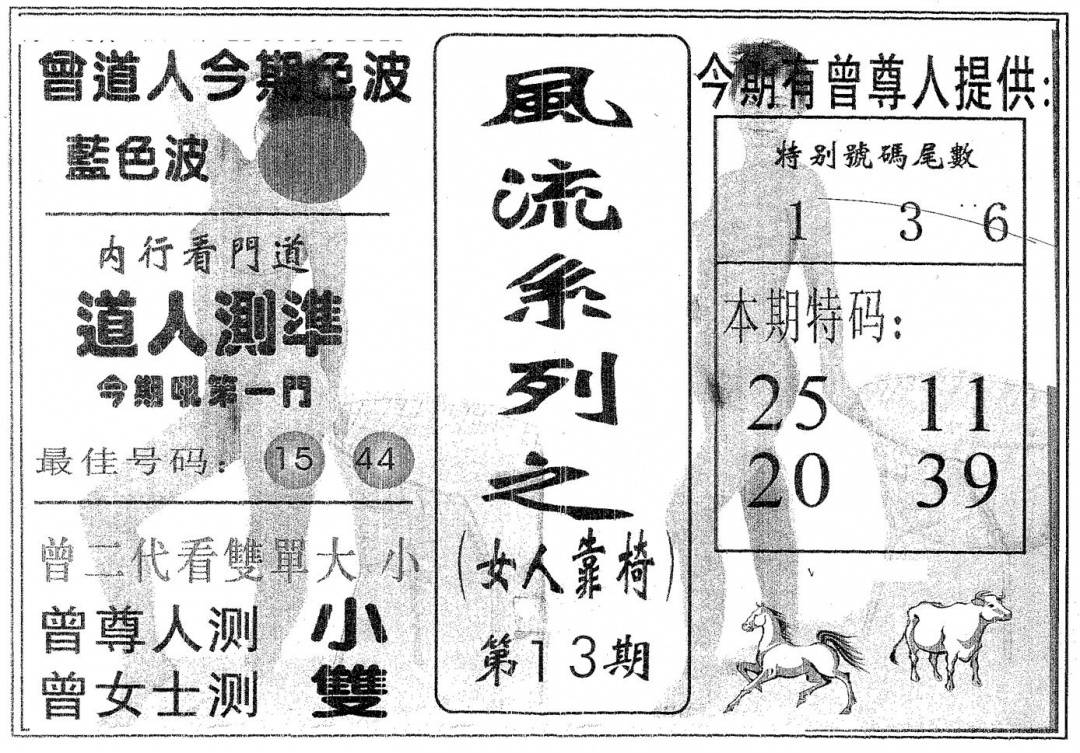 曾道人今期色波
藍色波
内行看門道
道人測準
今期吼第一門
最佳号码：15 44
曾二代看雙單大小
曾尊人测 小
曾女士测 雙
風流系列之
（女人靠椅）
第13期
今期有曾尊人提供：
特别號碼尾數
1 3 6
本期特码：
25 11
20 39